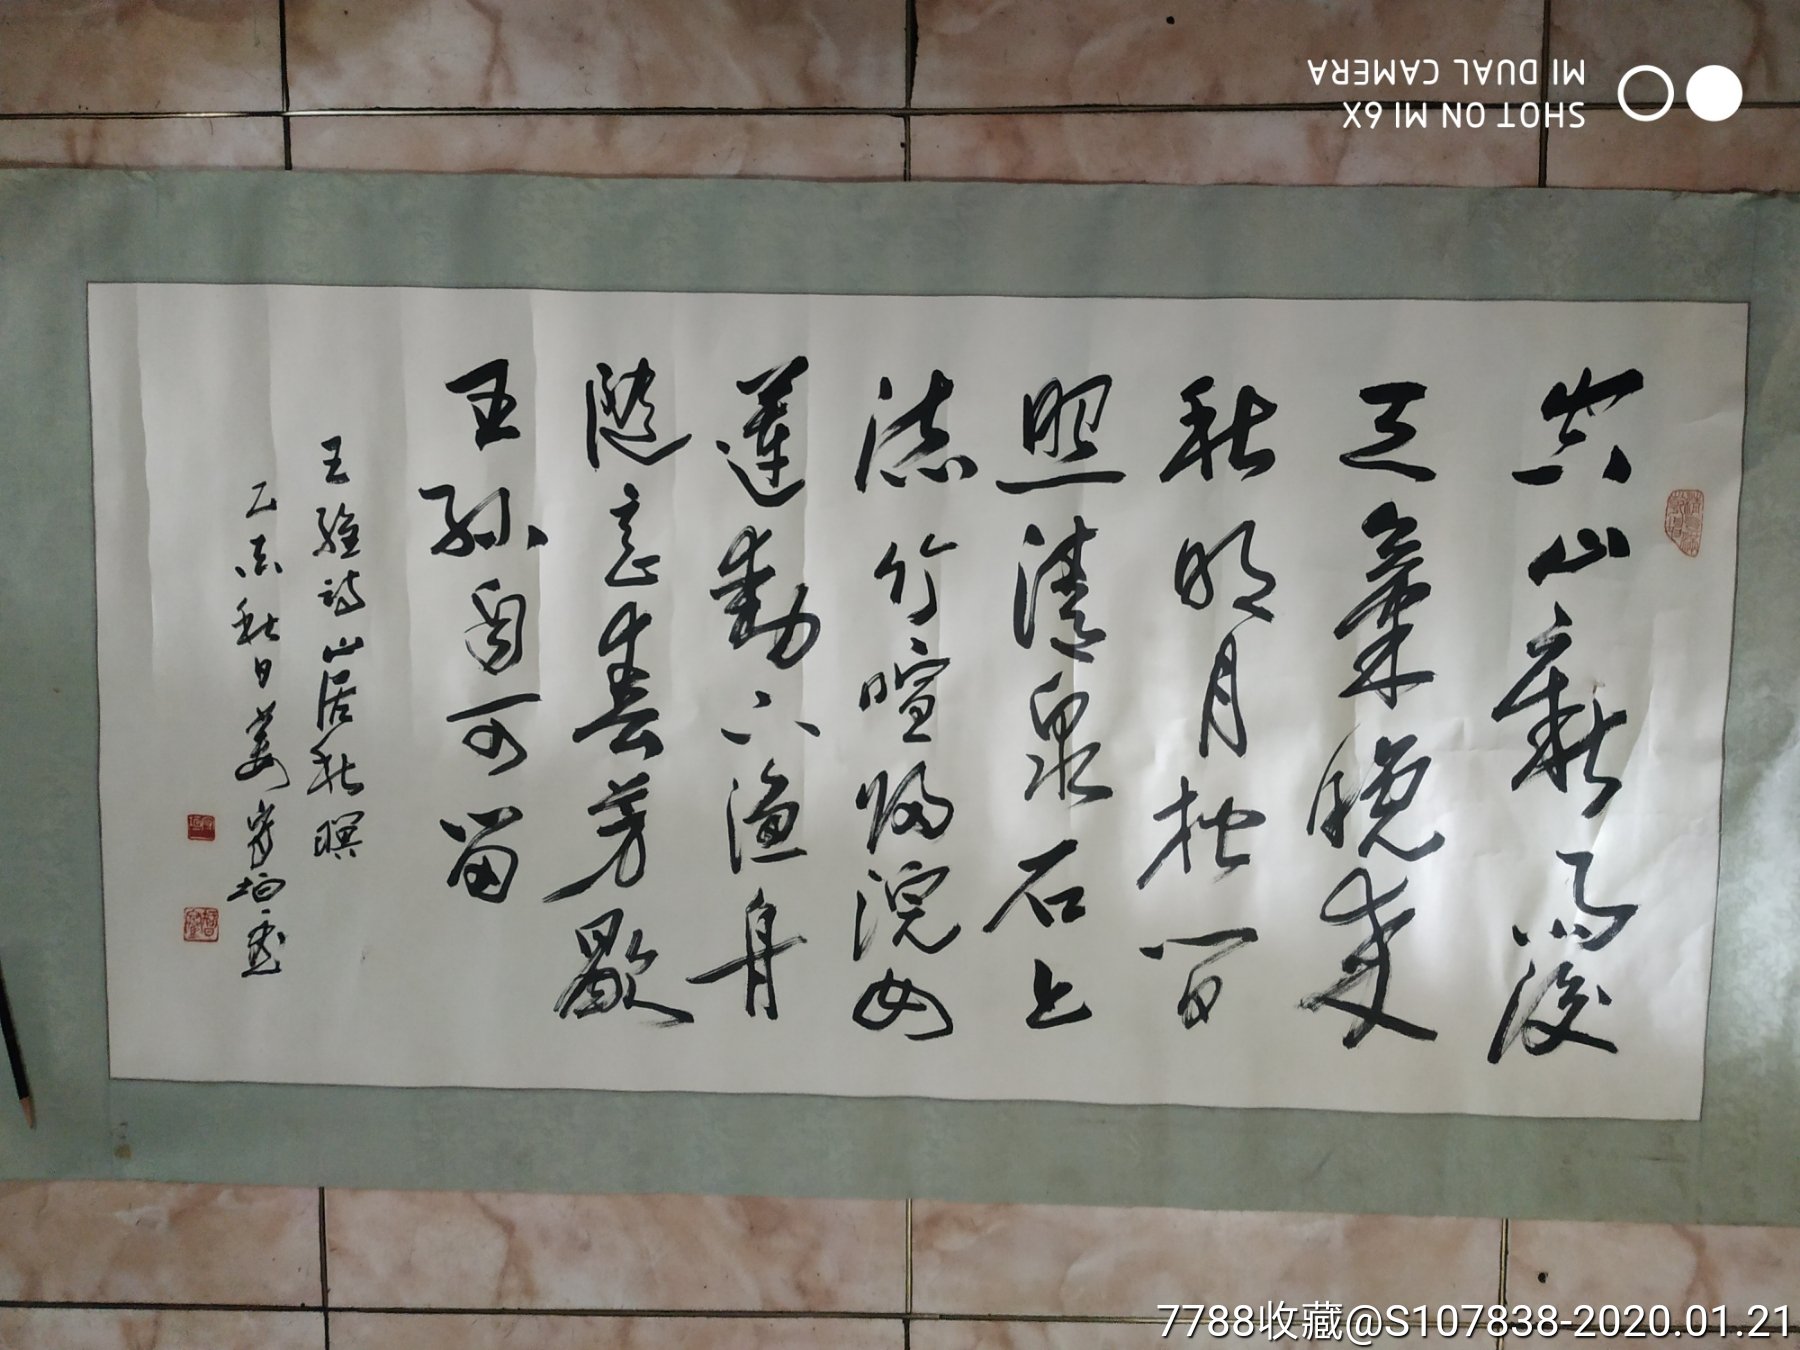 空山新雨後
天氣晚來
秋明月松間
照清泉石上
流竹喧歸浣女
蓮動下漁舟
隨意春芳歇
王孫自可留
王維詩山居秋暝
乙亥秋日姜
SHOT ON MI 6X
MI DUAL CAMERA
7788收藏@S107838-2020.01.21